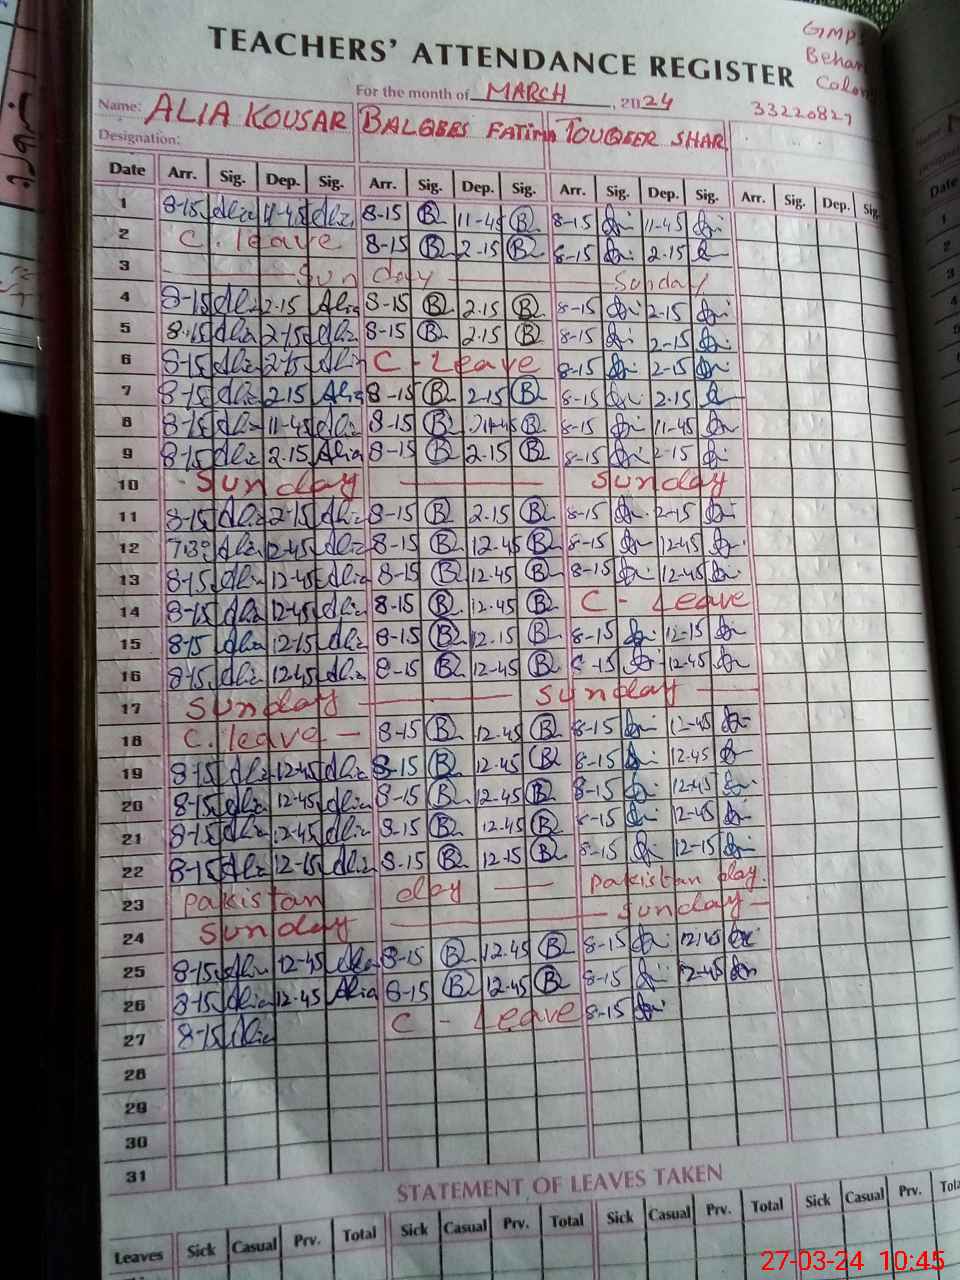 TEACHERS' ATTENDANCE REGISTER
GMPS
Behar
Colony
33220827
For the month of MARCH, 2024
Name: ALIA KOUSAR BALQEES FATIMA TOUQEER SHAR
Designation:
Date Arr. Sig. Dep. Sig. Arr. Sig. Dep. Sig. Arr. Sig. Dep. Sig. Arr. Sig. Dep. Sig.
1 8-15 Alia 11-45 Alia 8-15 B 11-45 B 8-15 11-45
2 C. leave 8-15 B 2.15 B 8-15 2.15
3 Sunday Sunday
4 8-15 Alia 2-15 Alia 8-15 B 2.15 B 8-15 2-15
5 8-15 Alia 2-15 Alia 8-15 B 2.15 B 8-15 2-15
6 8-15 Alia 2-15 Alia C-Leave 8-15 2-15
7 8-15 Alia 2.15 Alia 8-15 B 2-15 B 8-15 2.15
8 8-15 Alia 11-45 Alia 8-15 B 11-45 B 8-15 11-45
9 8-15 Alia 2.15 Alia 8-15 B 2.15 B 8-15 2-15
10 Sunday Sunday
11 8-15 Alia 2-15 Alia 8-15 B 2.15 B 8-15 2-15
12 7.30 Alia 12-45 Alia 8-15 B 12.45 B 8-15 12-45
13 8-15 Alia 12-45 Alia 8-15 B 12-45 B 8-15 12-45
14 8-15 Alia 12-45 Alia 8-15 B 12.45 B C- Leave
15 8-15 Alia 12-15 Alia 8-15 B 12.15 B 8-15 12-15
16 8-15 Alia 12-45 Alia 8-15 B 12-45 B 8-15 12-45
17 Sunday Sunday
18 C. leave 8-15 B 12.45 B 8-15 12-45
19 8-15 Alia 12-45 Alia 8-15 B 12.45 B 8-15 12.45
20 8-15 Alia 12-45 Alia 8-15 B 12.45 B 8-15 12-45
21 8-15 Alia 12-45 Alia 8-15 B 12-45 B 8-15 12-45
22 8-15 Alia 12-15 Alia 8-15 B 12.15 B 8-15 12-15
23 Pakistan day Pakistan day.
24 Sunday Sunday
25 8-15 Alia 12-45 Alia 8-15 B 12.45 B 8-15 12.45
26 8-15 Alia 12.45 Alia 8-15 B 12.45 B 8-15 12-45
27 8-15 Alia C - Leave 8-15
28
29
30
31
STATEMENT OF LEAVES TAKEN
Leaves Sick Casual Prv. Total Sick Casual Prv. Total Sick Casual Prv. Total Sick Casual Prv. Total
27-03-24 10:45